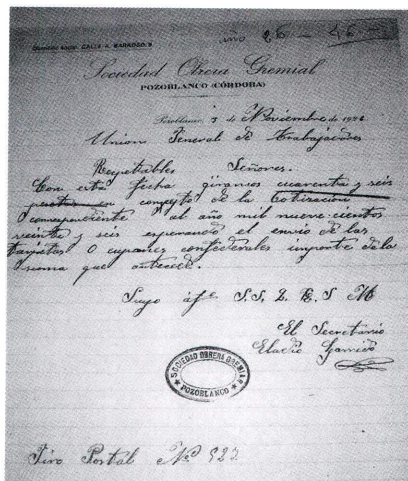 Domicilio social: CALLE A. BARROSO, 8
26 - 46 -
Sociedad Obrera Gremial
POZOBLANCO (CÓRDOBA)
Pozoblanco, 5 de Noviembre de 1926
Union General de Trabajadores
Respetables Señores.
Con esta fecha giramos cuarenta y seis
pesetas en concepto de la Cotizacion
correspondiente al año mil nuevecientos
veinte y seis esperando el envio de las
tarjetas o cupones confederales importe de la
suma que antecede.
Suyo afo S.S. 2 E. S M
El Secretario
Eladio Garrido
SOCIEDAD OBRERA GREMIAL
POZOBLANCO
Jiro Postal Nº 922